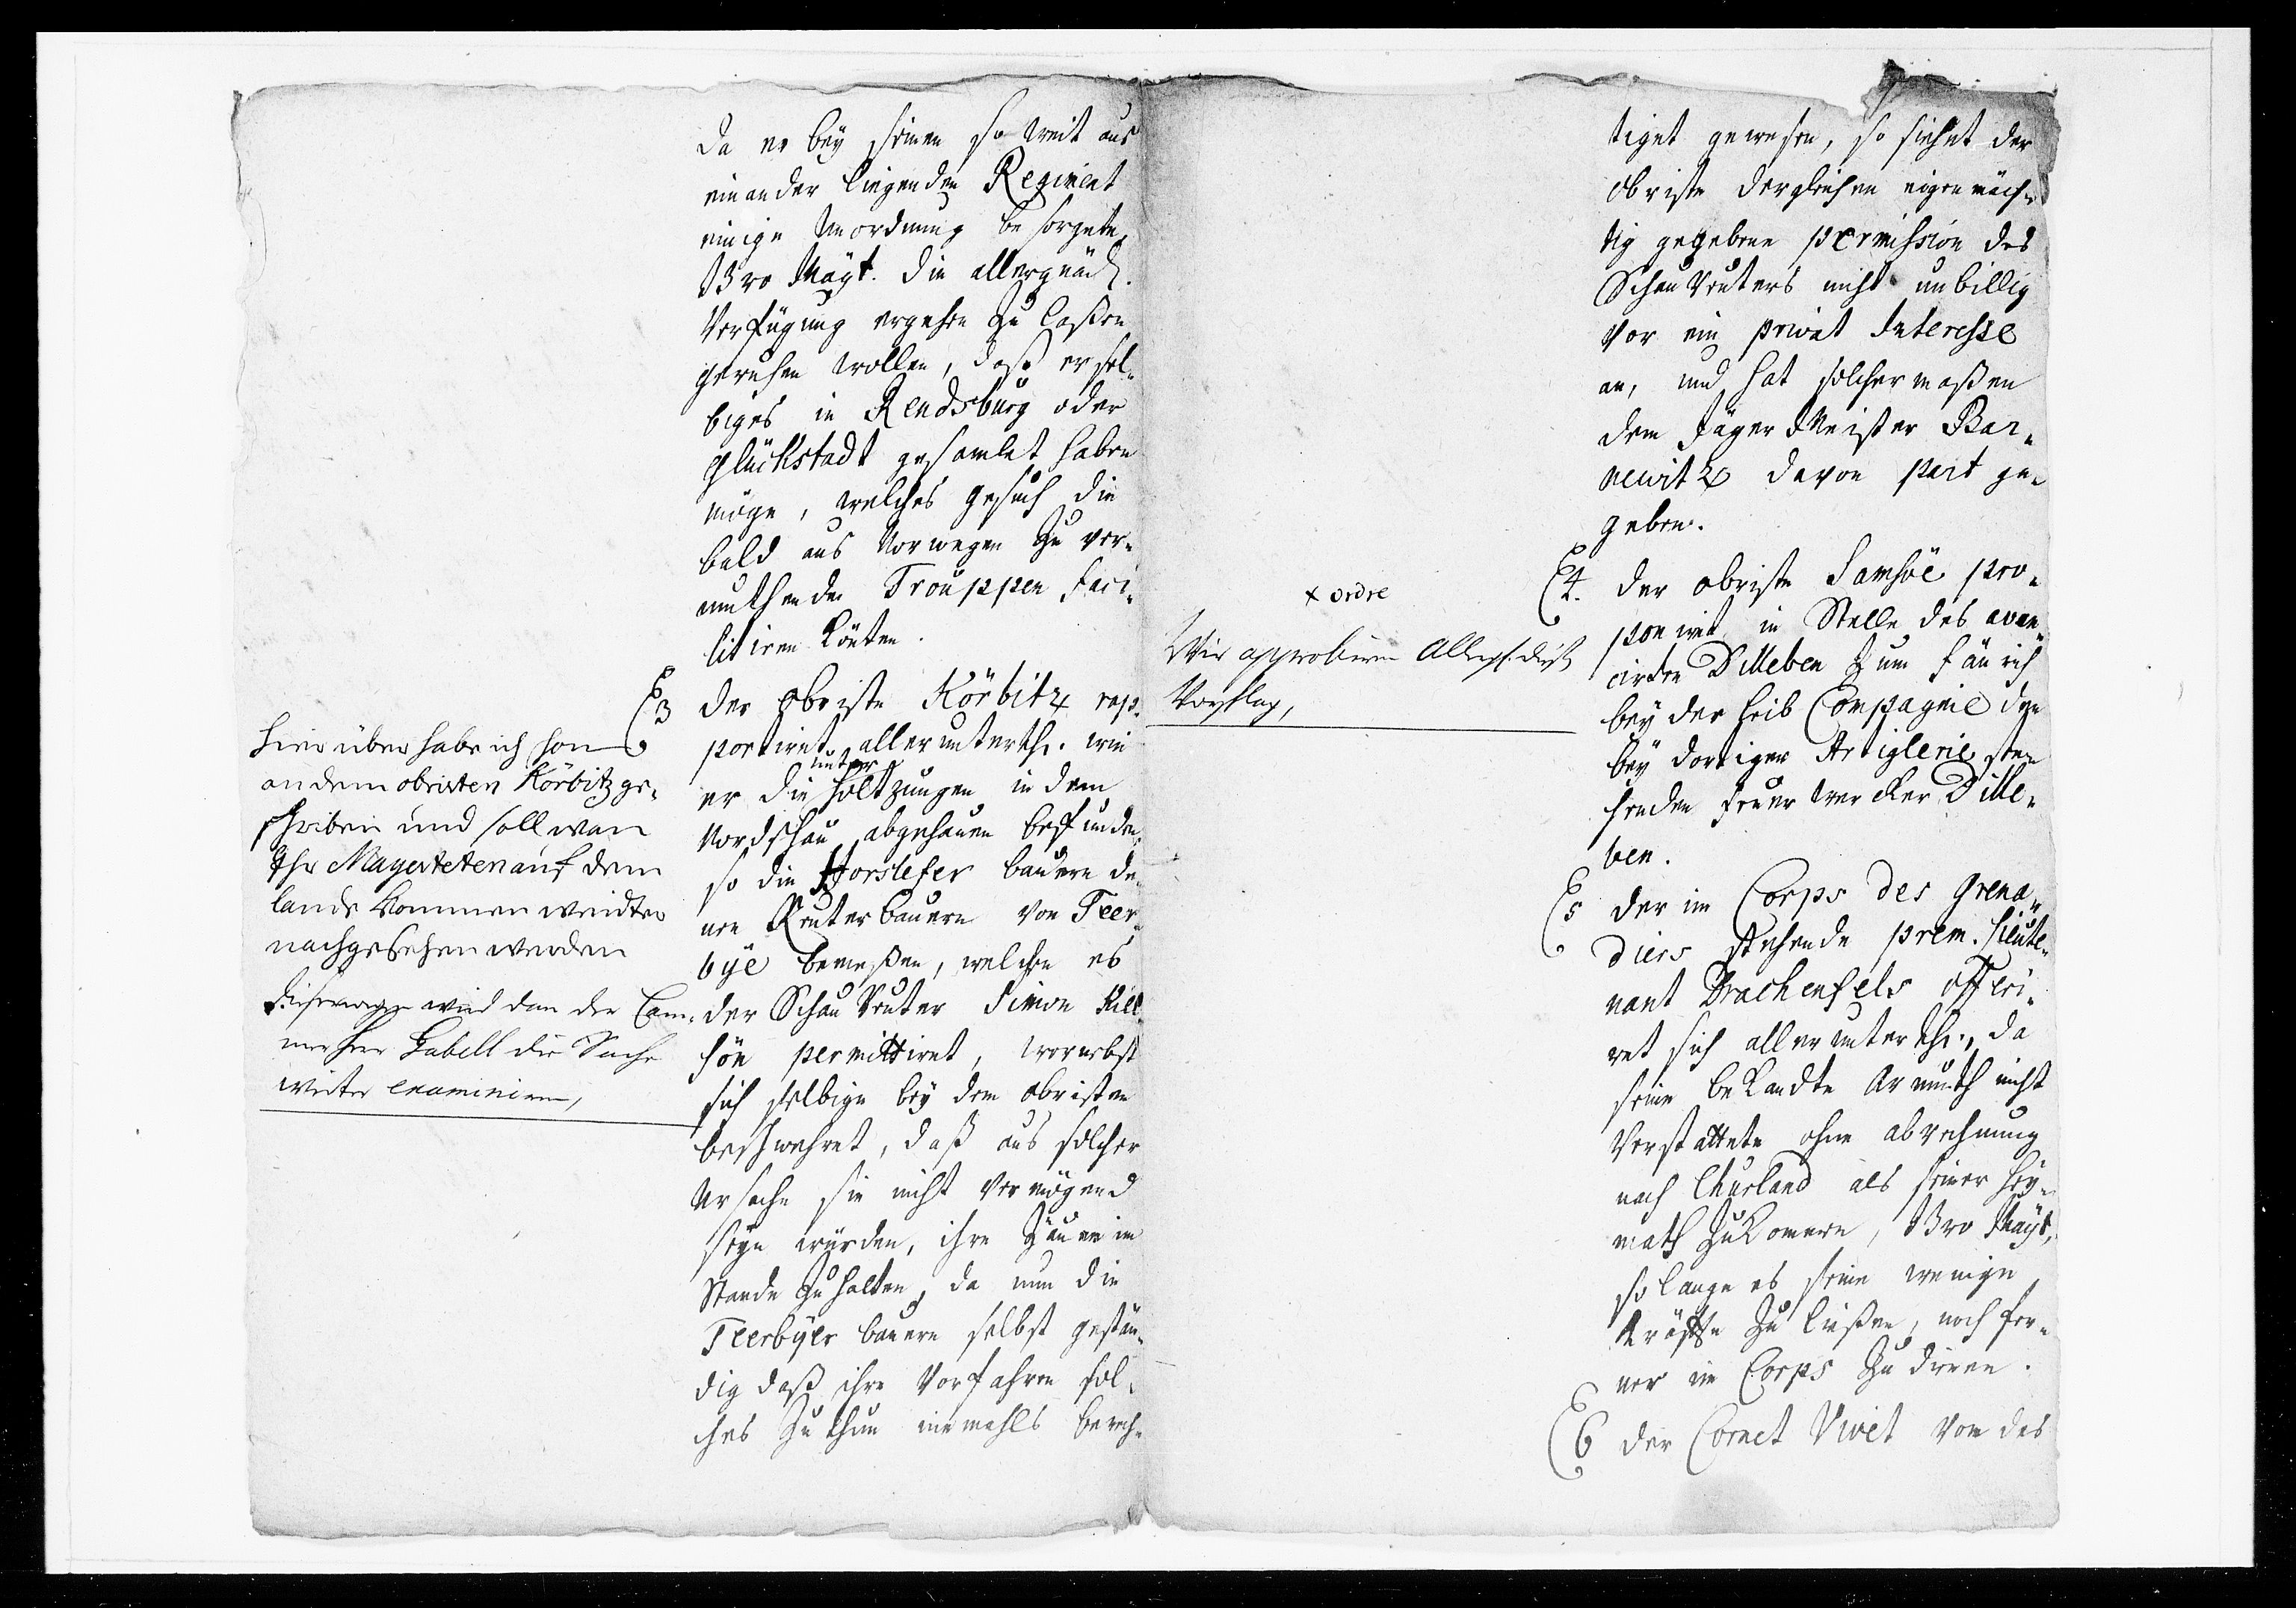 Da er bey seinen so weit aus
einander liegenden Regiment
einige Unordnung besorgete,
Ew Mayt. die allergnäd.
Verfügung ergehen zu laßen
geruhen wollen, daß er sel-
biges in Rendsburg oder
Glückstadt gesamlet haben
möge, welches gesuch die
bald aus Norwegen zu ver-
muthende Trouppen faci-
litiren könten.
3 Der Obriste Körbitz rap-
portiret allerunterth. wie
unter
er die holtzungen in dem
Nordskau abgehauen befunden,
so die Horslefer bauern de-
nen Reuter bauern von Teer-
bye bewiesen, welchen es
der Schau Reuter Simon Kill-
sön permittiret, wornebst
sich selbige bey dem Obristen
beschwehret, daß aus solcher
Ursache sie nicht vermögend
seyn würden, ihre Zäune im
Stande zu halten, da nun die
Teerbyer bauern selbst gestän-
dig daß ihre Vorfahren sol-
ches zu thun niemahls berech-
Hier über habe ich schon
an dem obristen Körbitz ge-
schriben und soll wan
Ihr Mayesteten auf dem
lande kommen weidter
nachgesehen werden
wird dan der Cam-
mer Herr Gabell die Sache
weiter examiniren,
tiget gewesen, so siehet der
Obriste dergleichen eigenmäch-
tig gegebene permission des
Schau Reuters nicht unbillig
vor ein privat Interesse
an, und hat solchermaßen
dem Jäger Meister Bar-
newitz davon part ge-
geben.
4. Der Obriste Samsöe pro-
poniret in Stelle des avan-
cirten Dilleben zum fänrich
bey der Leib Compagnie den
bey dortiger Artiglerie ste-
henden feuerwercker Dille-
ben.
x ordre
Wir approbiren Allergst. dießen
Vorschlag,
5 Der im Corps des Grena-
diers stehende prem. Lieute-
nant Drachenfels offeri-
ret sich allerunterth., da
seine bekandte Armuth nicht
verstattete ohne abrechnung
nach Churland als seiner Hey-
math zu kommen, Ew Mayt,
so lange es seine wenige
Kräffte zu ließen, noch fer-
ner im Corps zu dienen.
6 Der Cornet Vivet von des